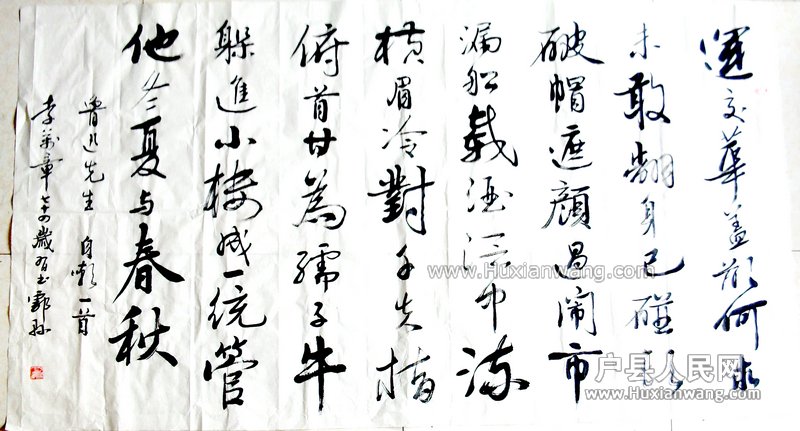 運交華蓋欲何求
未敢翻身已碰頭
破帽遮顏過鬧市
漏船載酒泛中流
横眉冷對千夫指
俯首甘為孺子牛
躲進小樓成一統管
他冬夏與春秋
魯迅先生 自嘲一首
李萬章 歲習書
www.Huxianwang.com
户县人民网
www.Huxianwang.com